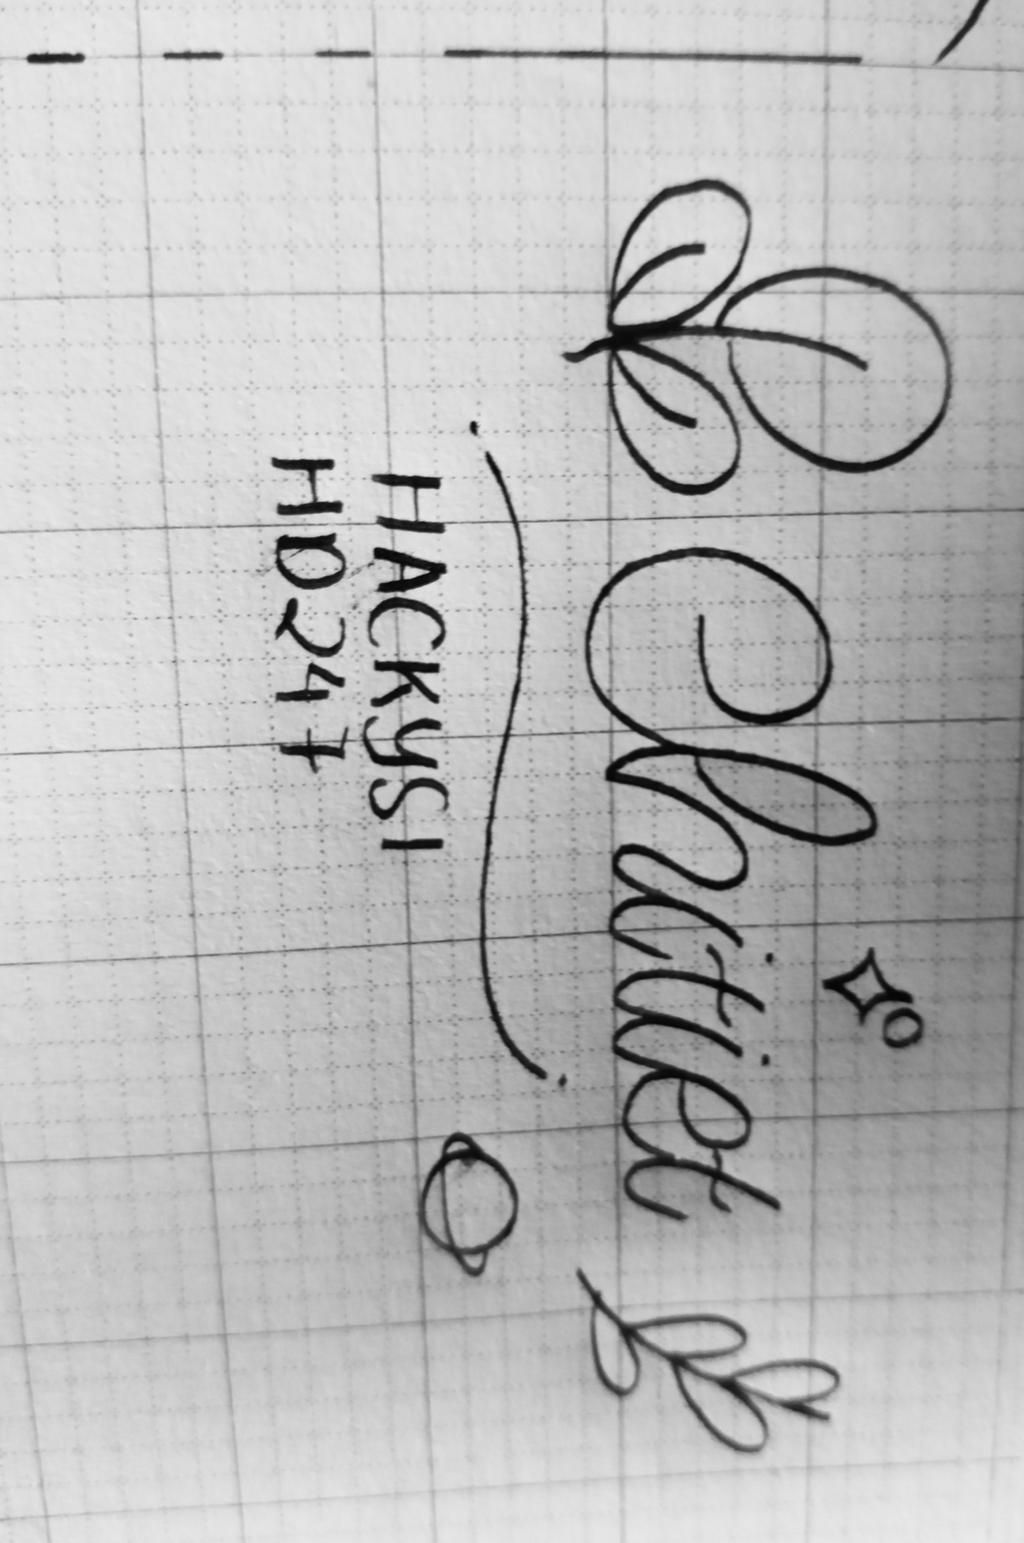 Chi tiet
HACKYSI
HD247